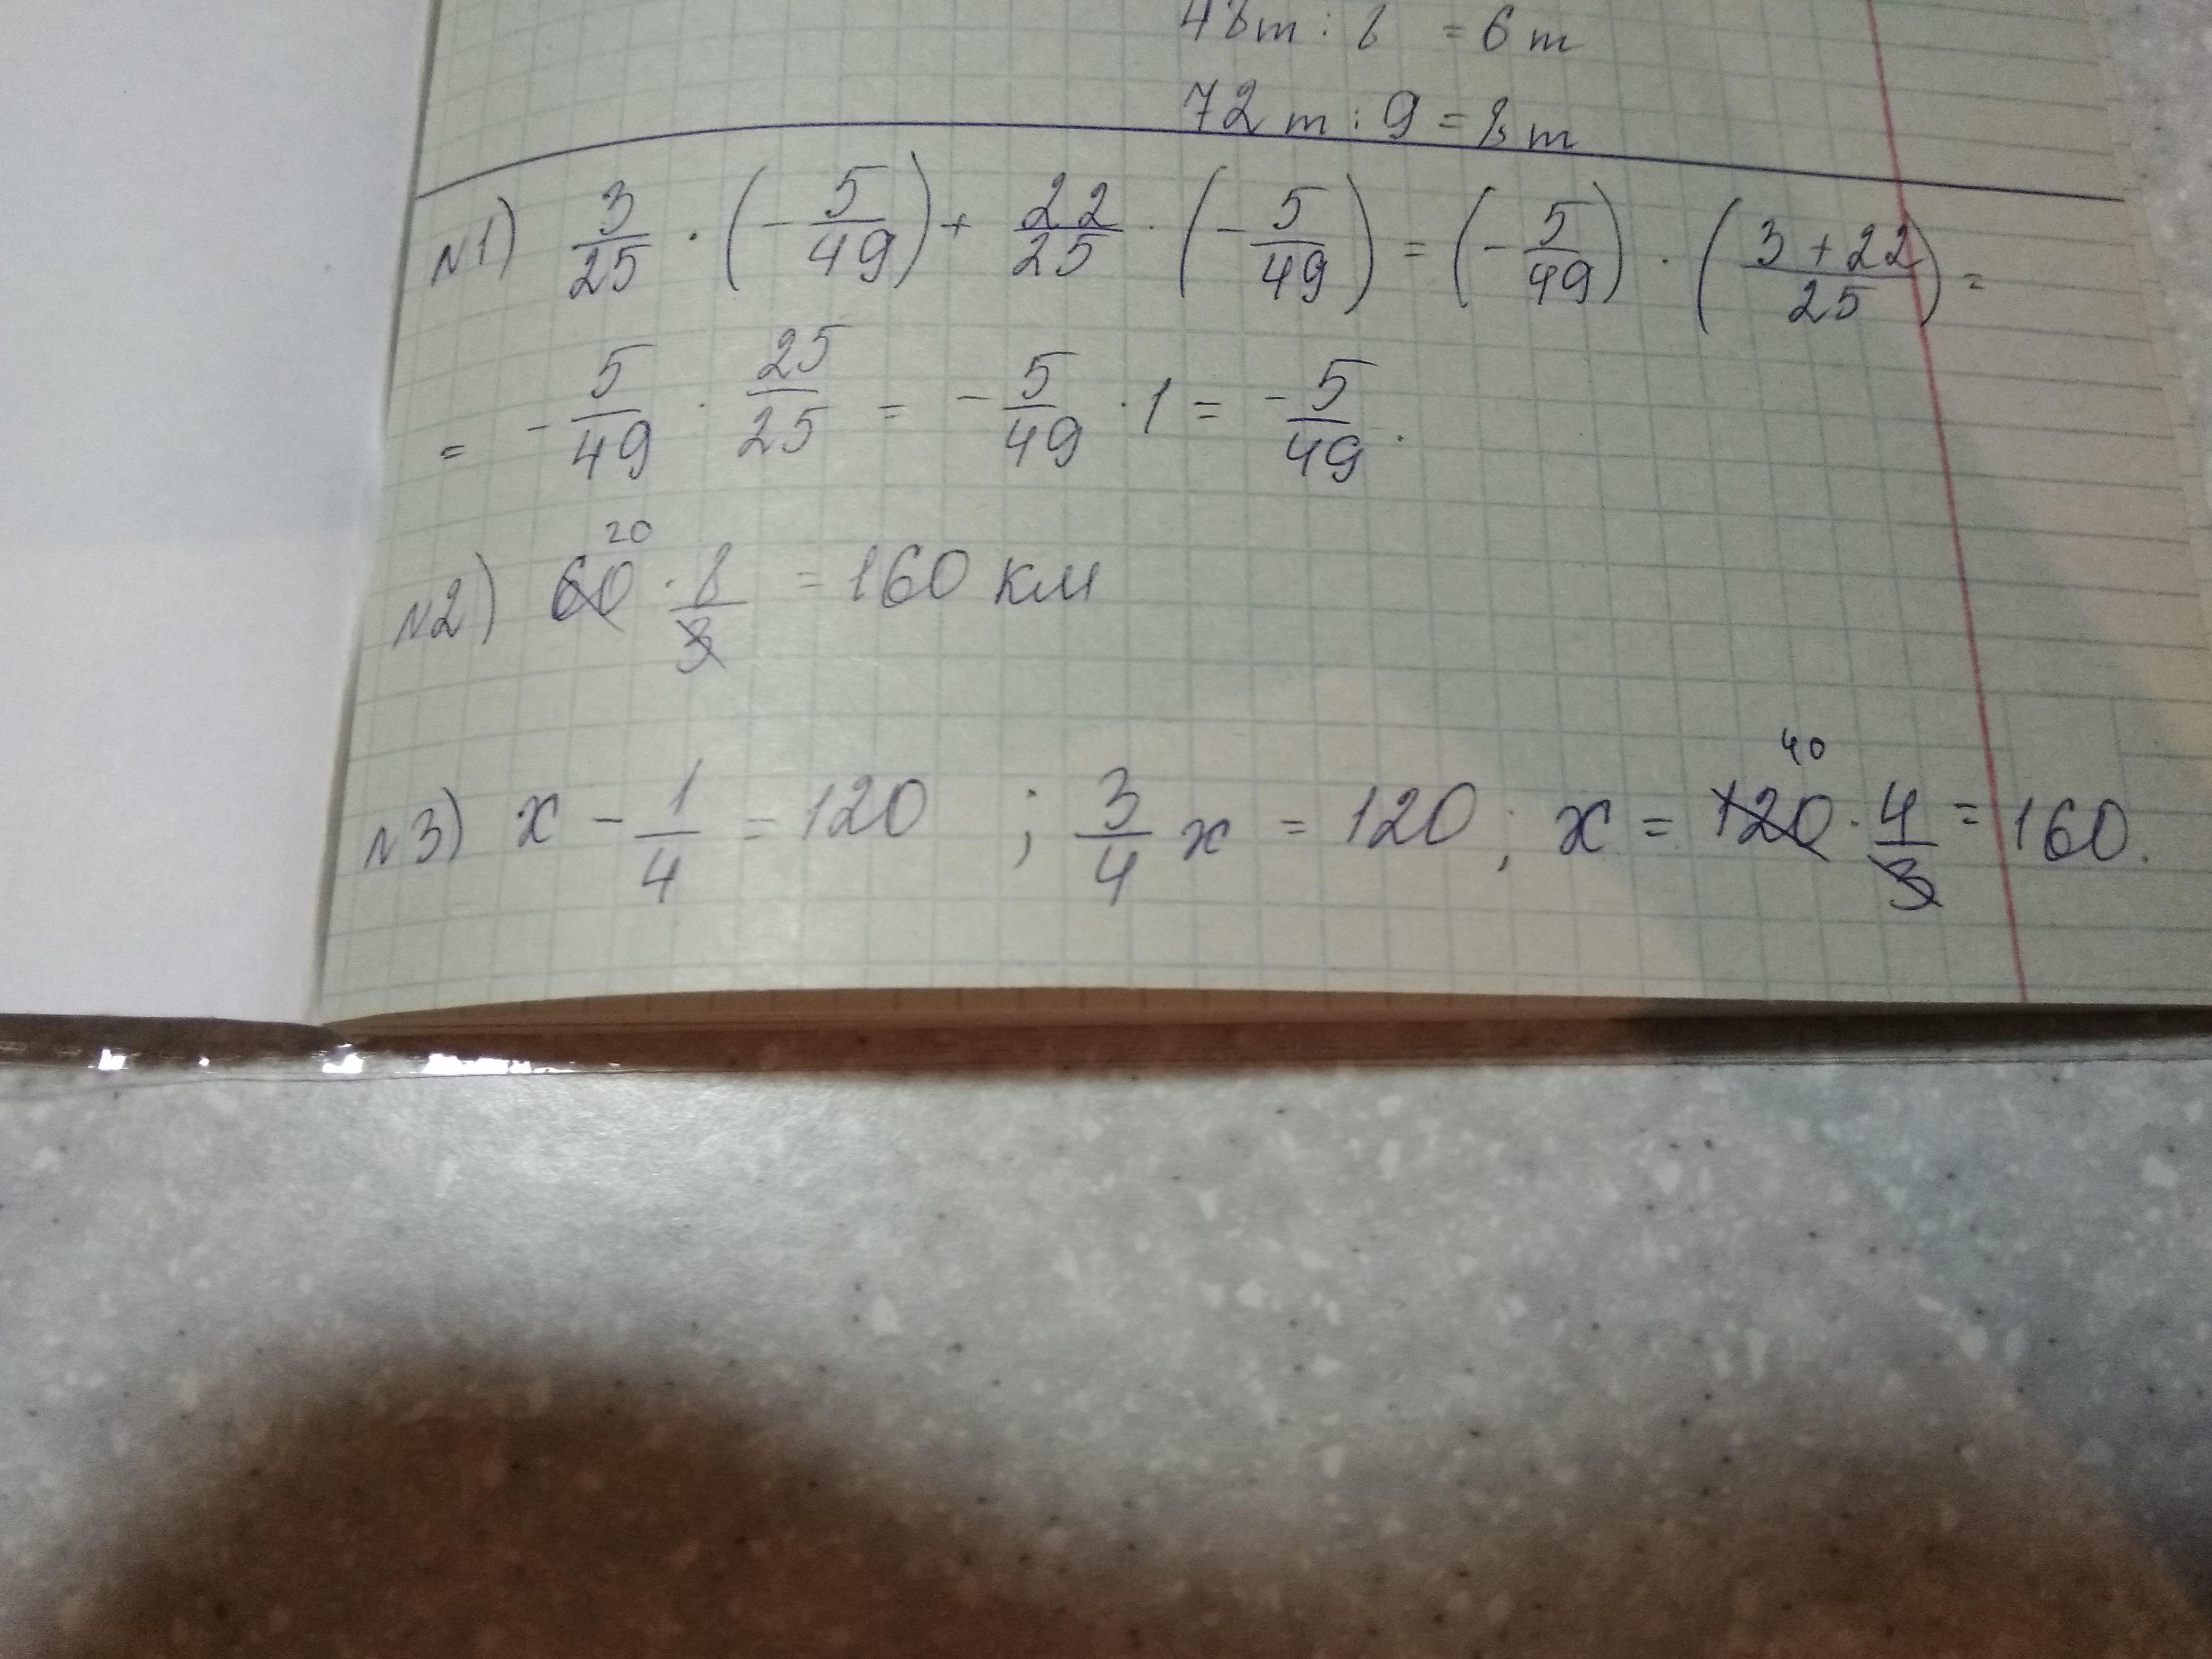 48 т : 8 = 6 т
72 т : 9 = 8 т
№1) 3/25 · (- 5/49) + 22/25 · (- 5/49) = (- 5/49) · ((3 + 22)/25) =
= - 5/49 · 25/25 = - 5/49 · 1 = - 5/49.
20
№2) 60 · 8/3 = 160 км
40
№3) x - 1/4 = 120 ; 3/4 x = 120 ; x = 120 · 4/3 = 160.